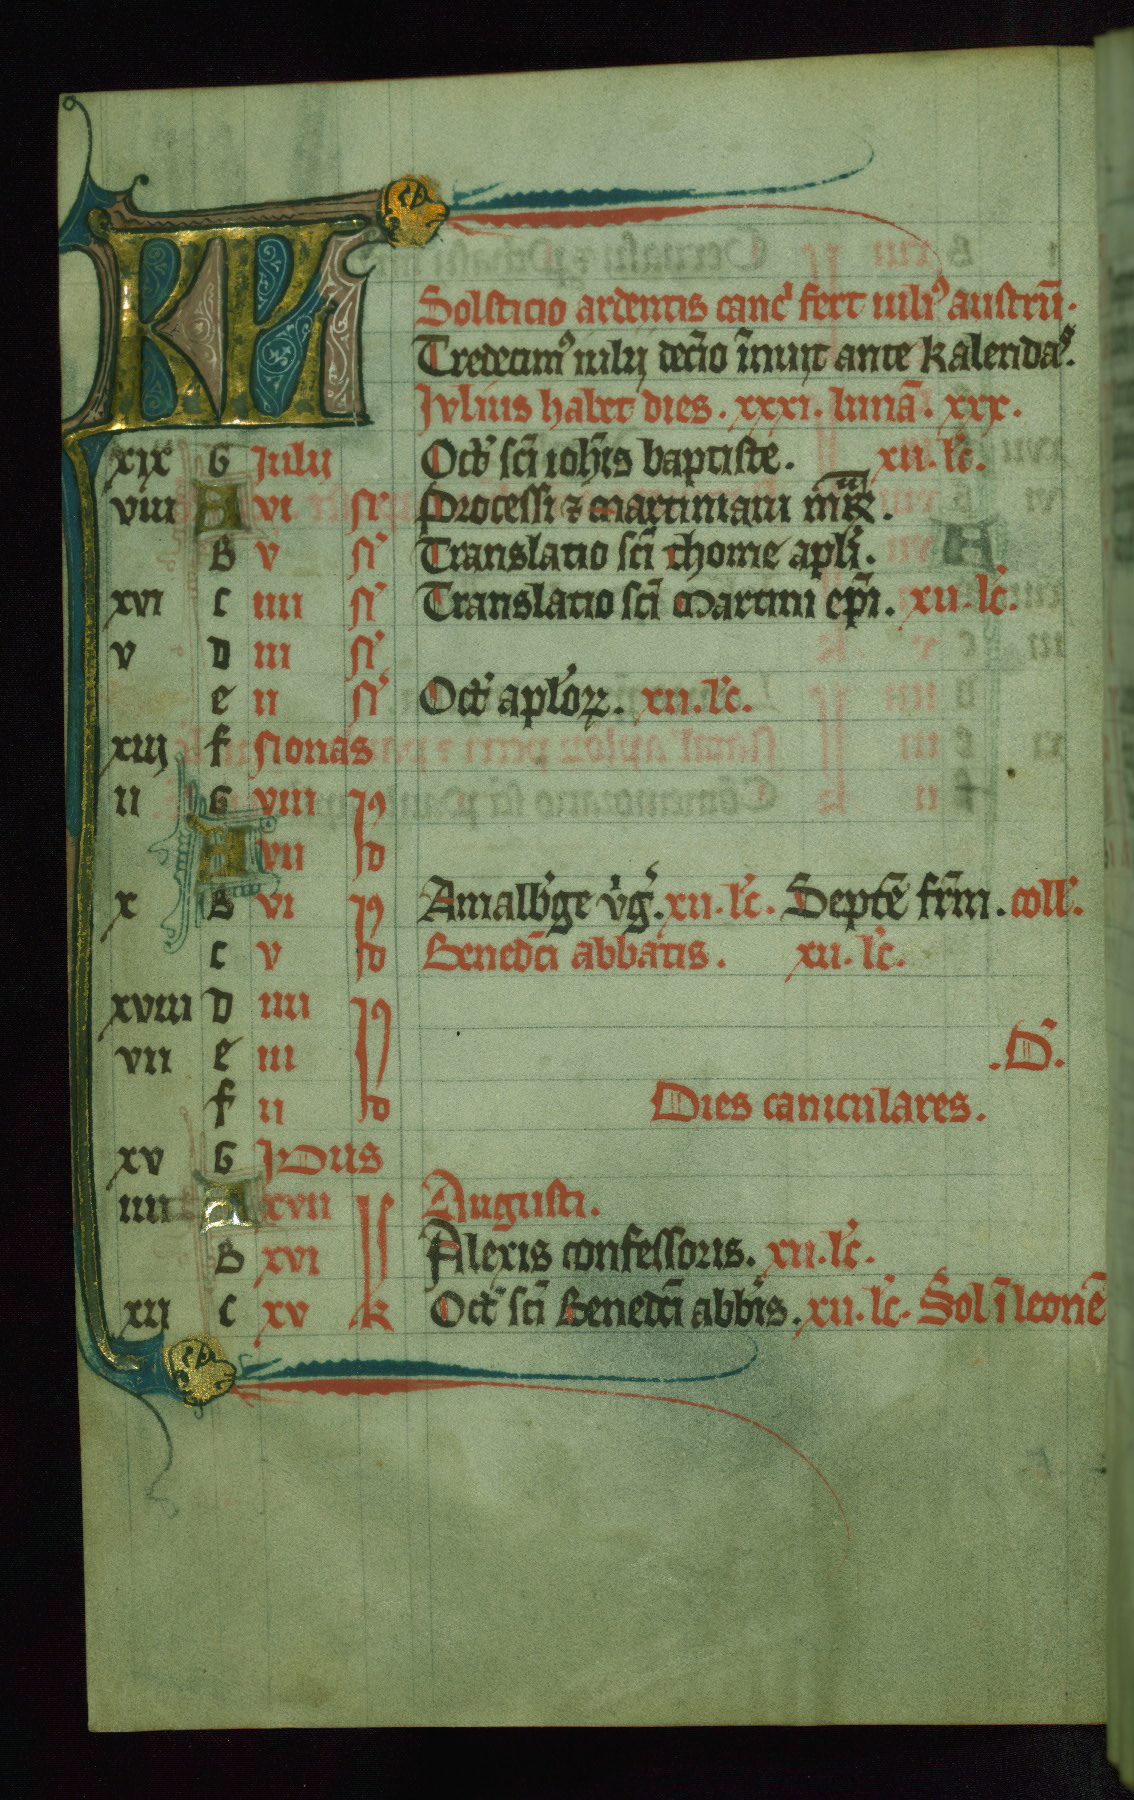 KL
Solsticio ardentis canc̉ fert iuli⁹ austrū.
Tredecim⁹ iulij decīo īnuit ante kalenda⁹.
Julius habet dies. xxxi. lunā. xxx.
xix G Julij Oct̉ sc̄i ioh̄is baptiste. xii. lc̉.
viii A vi N̉ Processi ⁊ martiniani mr̄̅.
B v N̉ Translatio sc̄i thome apl̉i.
xvi c iiii N̉ Translatio sc̄i Martini ep̄i. xii. lc̉.
v D iii N̉
e ii N̉ Oct̉ apl̉oꝝ. xii. lc̉.
xiij f Nonas
ii G viii Id
A vii
x B vi Id Amalb̉ge v̉g̉. xii. lc̉. Septē fr̄m. coll̉.
c v Benedc̄i abbatis. xii. lc̉.
xviii D iiii Id
vii e iii .D̉.
f ii Dies caniculares.
xv G Idus
iiii A xvii kl Augusti.
B xvi Alexis confessoris. xii. lc̉.
xii c xv Oct̉ sc̄i Benedc̄i abb̄is. xii. lc̉. Sol ī leonē